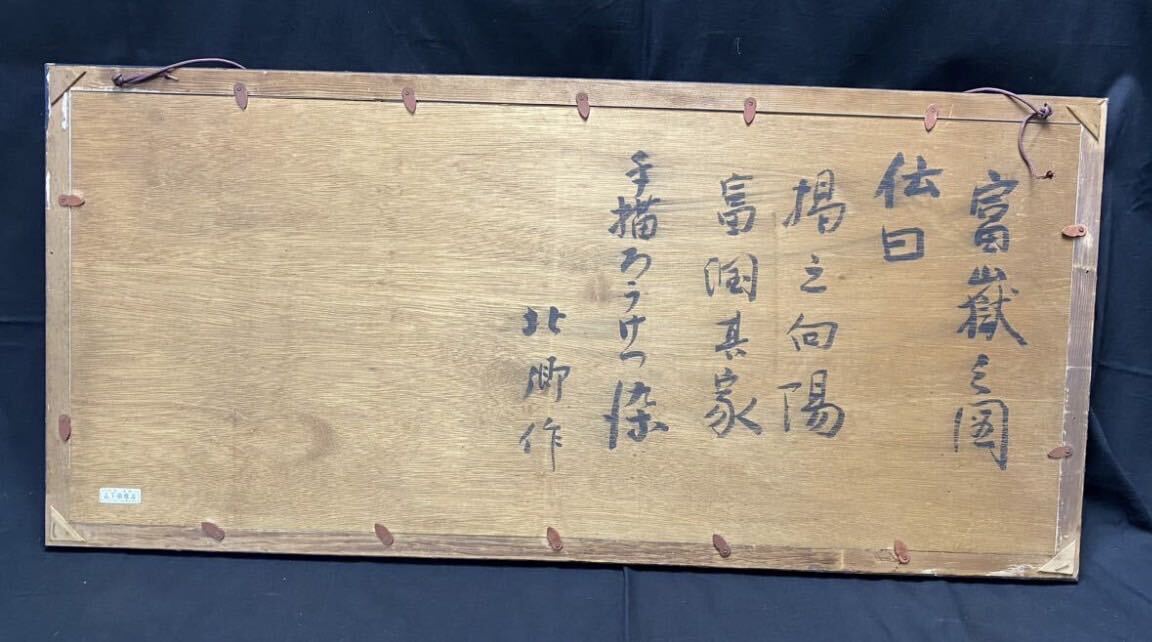 富嶽之図
伝曰
揚之向陽
富潤其家
手描ろうけつ染
北郷作